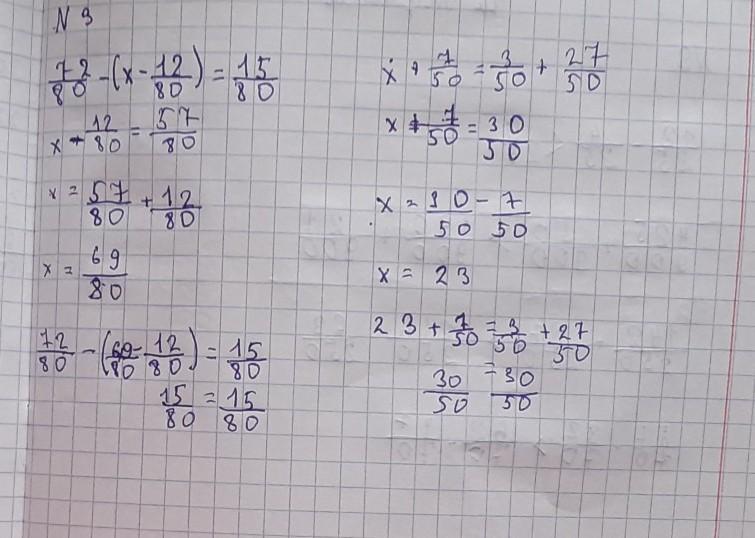 N 3
72/80 - (x - 12/80) = 15/80
x - 12/80 = 57/80
x = 57/80 + 12/80
x = 69/80
72/80 - (69/80 - 12/80) = 15/80
15/80 = 15/80
x + 7/50 = 3/50 + 27/50
x + 7/50 = 30/50
x = 30/50 - 7/50
x = 23
23 + 7/50 = 3/50 + 27/50
30/50 = 30/50